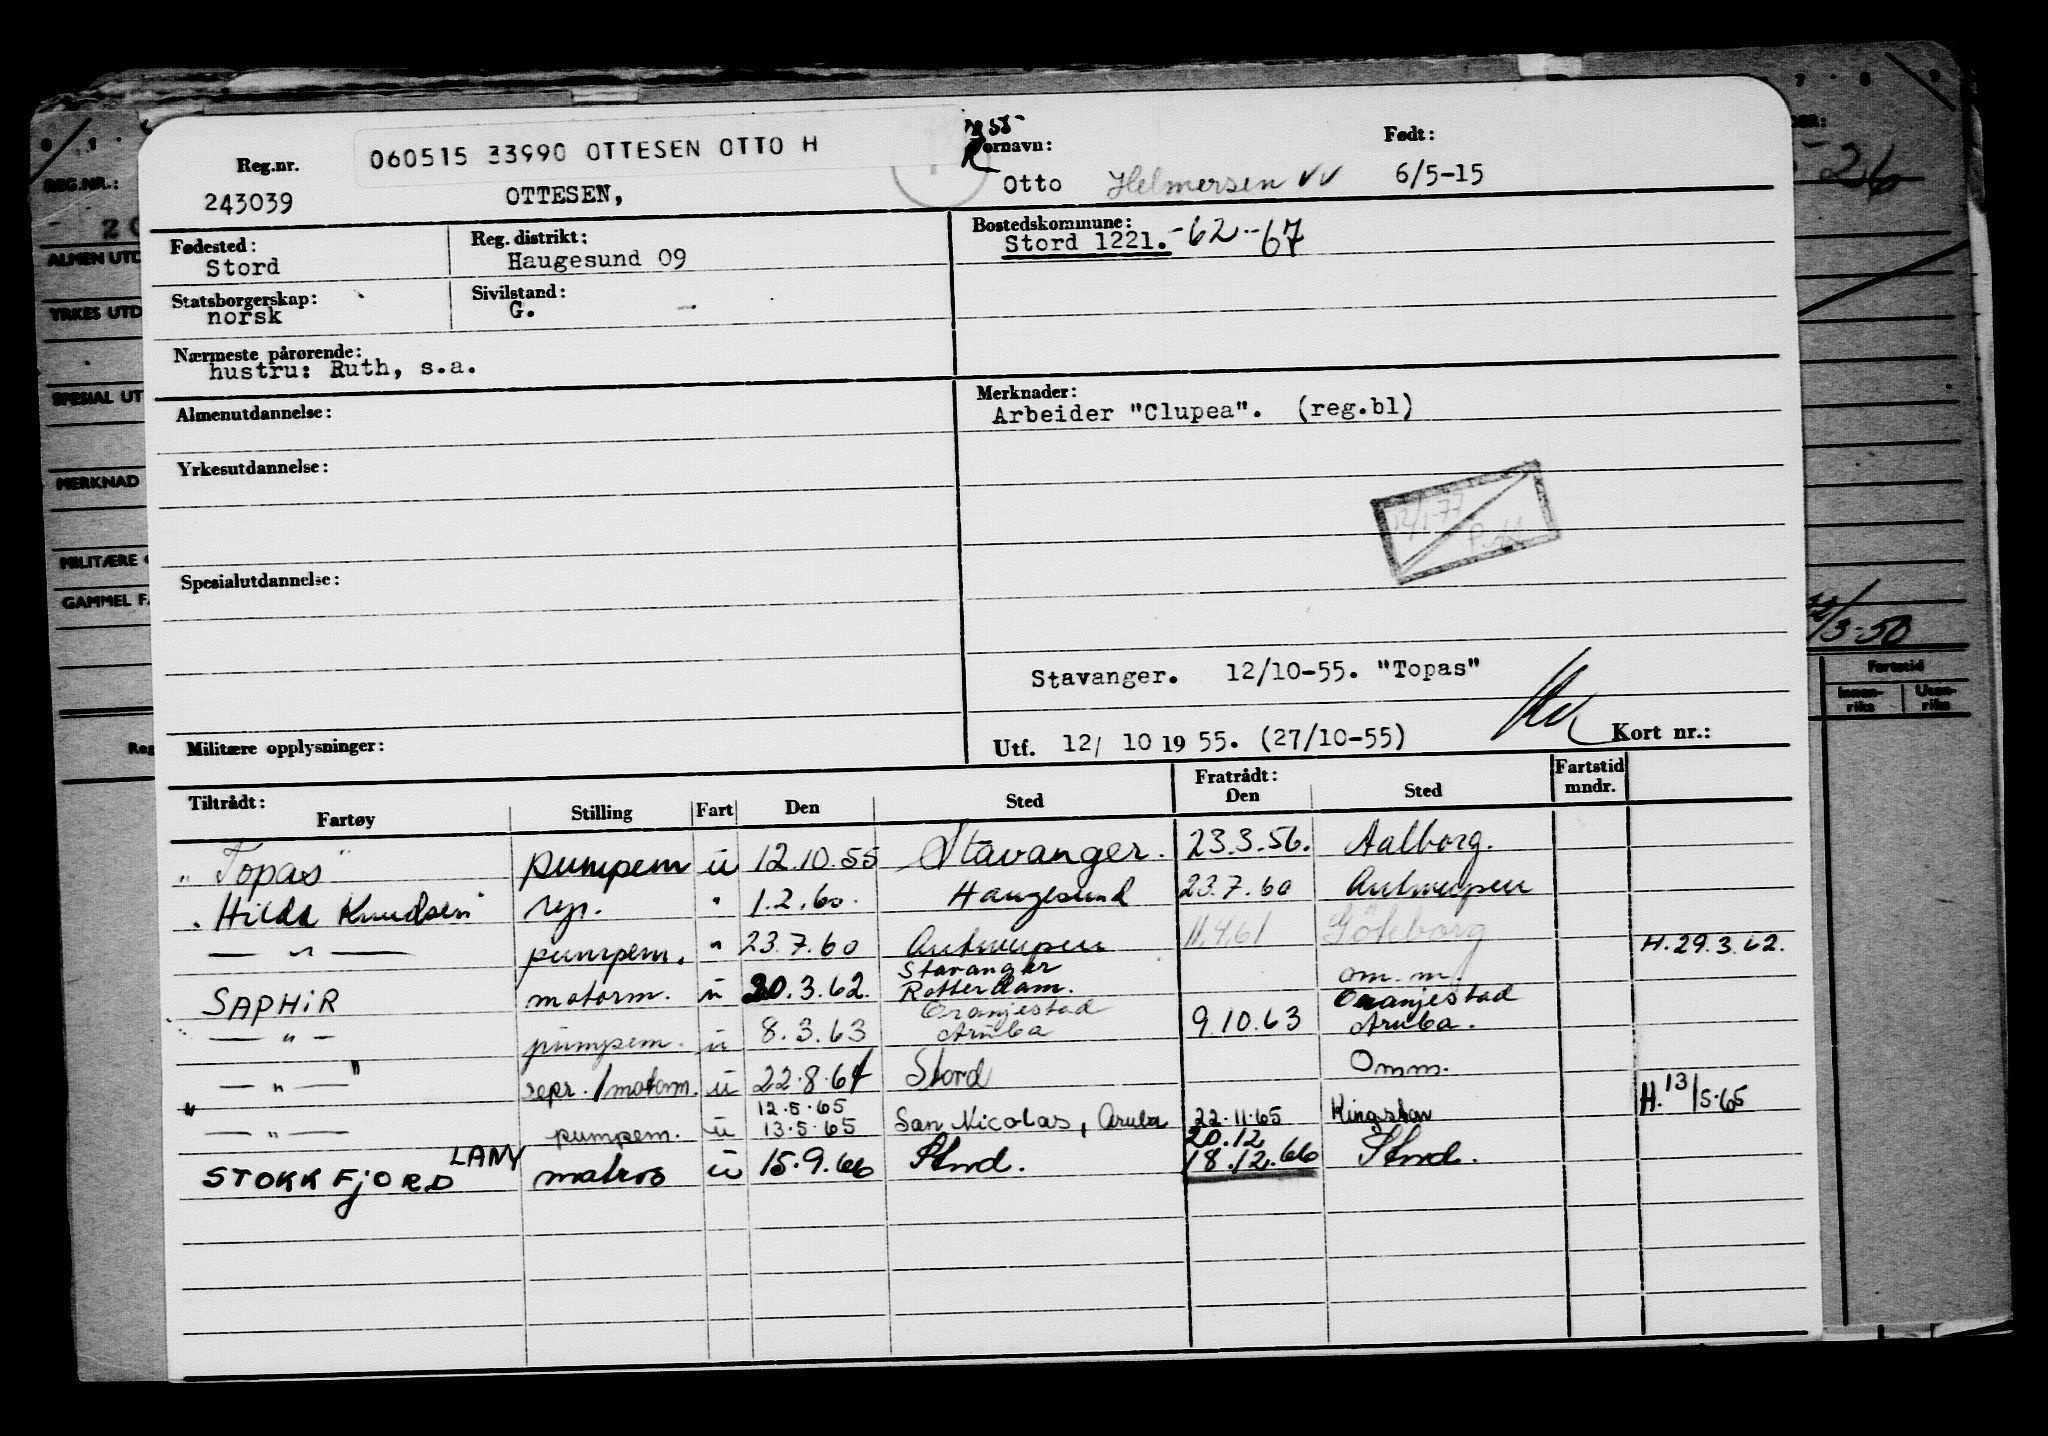 Reg.nr. 060515 33990 OTTESEN OTTO H Fornavn: Født:
243039 OTTESEN, Otto Helmersen 6/5-15
Fødested: Reg. distrikt: Bostedskommune:
Stord Haugesund 09 Stord 1221. -62 -67
Statsborgerskap: Sivilstand:
norsk G.
Nærmeste pårørende:
hustru: Ruth, s.a.
Almenutdannelse: Merknader:
Arbeider "Clupea". (reg.bl)
Yrkesutdannelse:
12/1-77
Spesialutdannelse:
Stavanger. 12/10-55. "Topas"
Militære opplysninger: Utf. 12/ 10 19 55. (27/10-55) Kort nr.:
Tiltrådt: Fratrådt: Fartstid
Fartøy Stilling Fart Den Sted Den Sted mndr.
"Topas" pumpem ü 12.10.55 Stavanger. 23.3.56. Aalborg.
"Hilda Knudsen" rep. " 1.2.60. Haugesund 23.7.60 Antwerpen
— " — pumpem. " 23.7.60 Antwerpen 11.4.61 Göteborg H. 29.3.62.
SAPHiR motorm. ü 20.3.62. Stavanger Rotterdam. om.m.
— " — pumpem. ü 8.3.63 Oranjestad Aruba 9.10.63 Oranjestad Aruba.
— " — repr./motorm. ü 22.8.64 Stord Omm.
— " — pumpem. ü 12.5.65 13.5.65 San Nicolas, Aruba 22.11.65 Kingston H. 13/5-65
STOKKFJORD LANY matros ü 15.9.66 Stord. 20.12 18.12.66 Stord.
REG.NR.:
ALMEN UTD
YRKES UTD
SPESIAL UT
MERKNAD
MILITÆRE
GAMMEL F
Reg
26
/3-50
Fartstid
Innen-riks Uten-riks